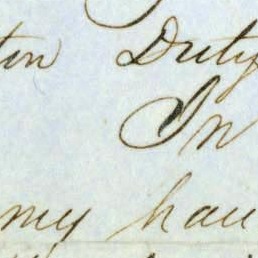 ton Duty
In
my hau